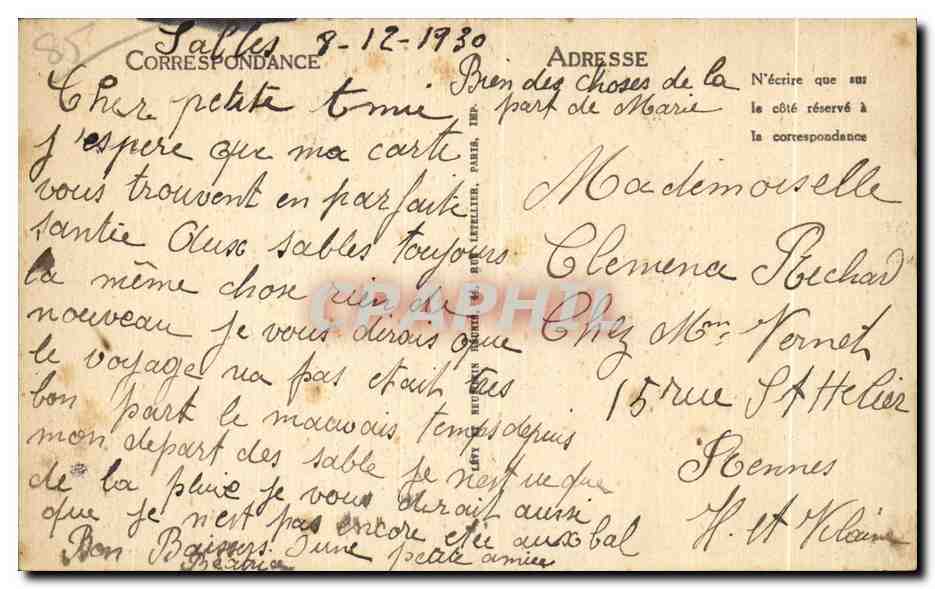 85
Salles 8-12-1930
CORRESPONDANCE
Cher petite Amie
j'espere que ma carte
vous trouvent en parfaite
santie Aux sables toujours
la même chose rien de
nouveau je vous dirais que
le voyage na pas etait tres
bon part le mauvais temps depuis
mon depart des sable je n'est vu que
de la pluie je vous dirait aussi
que je n'est pas encore etee aux bal
Bon Baisers d'une petite amie
Beatrice
LÉVY ET NEURDEIN RÉUNIS 44, RUE LETELLIER, PARIS, IMP.
ADRESSE
Bien des choses de la
part de Marie
N'écrire que sur
le côté réservé à
la correspondance
Mademoiselle
Clemence Rechard
Chez Mme Vernet
15 rue St Helier
Rennes
H. et Vilaine
CPAPHIL